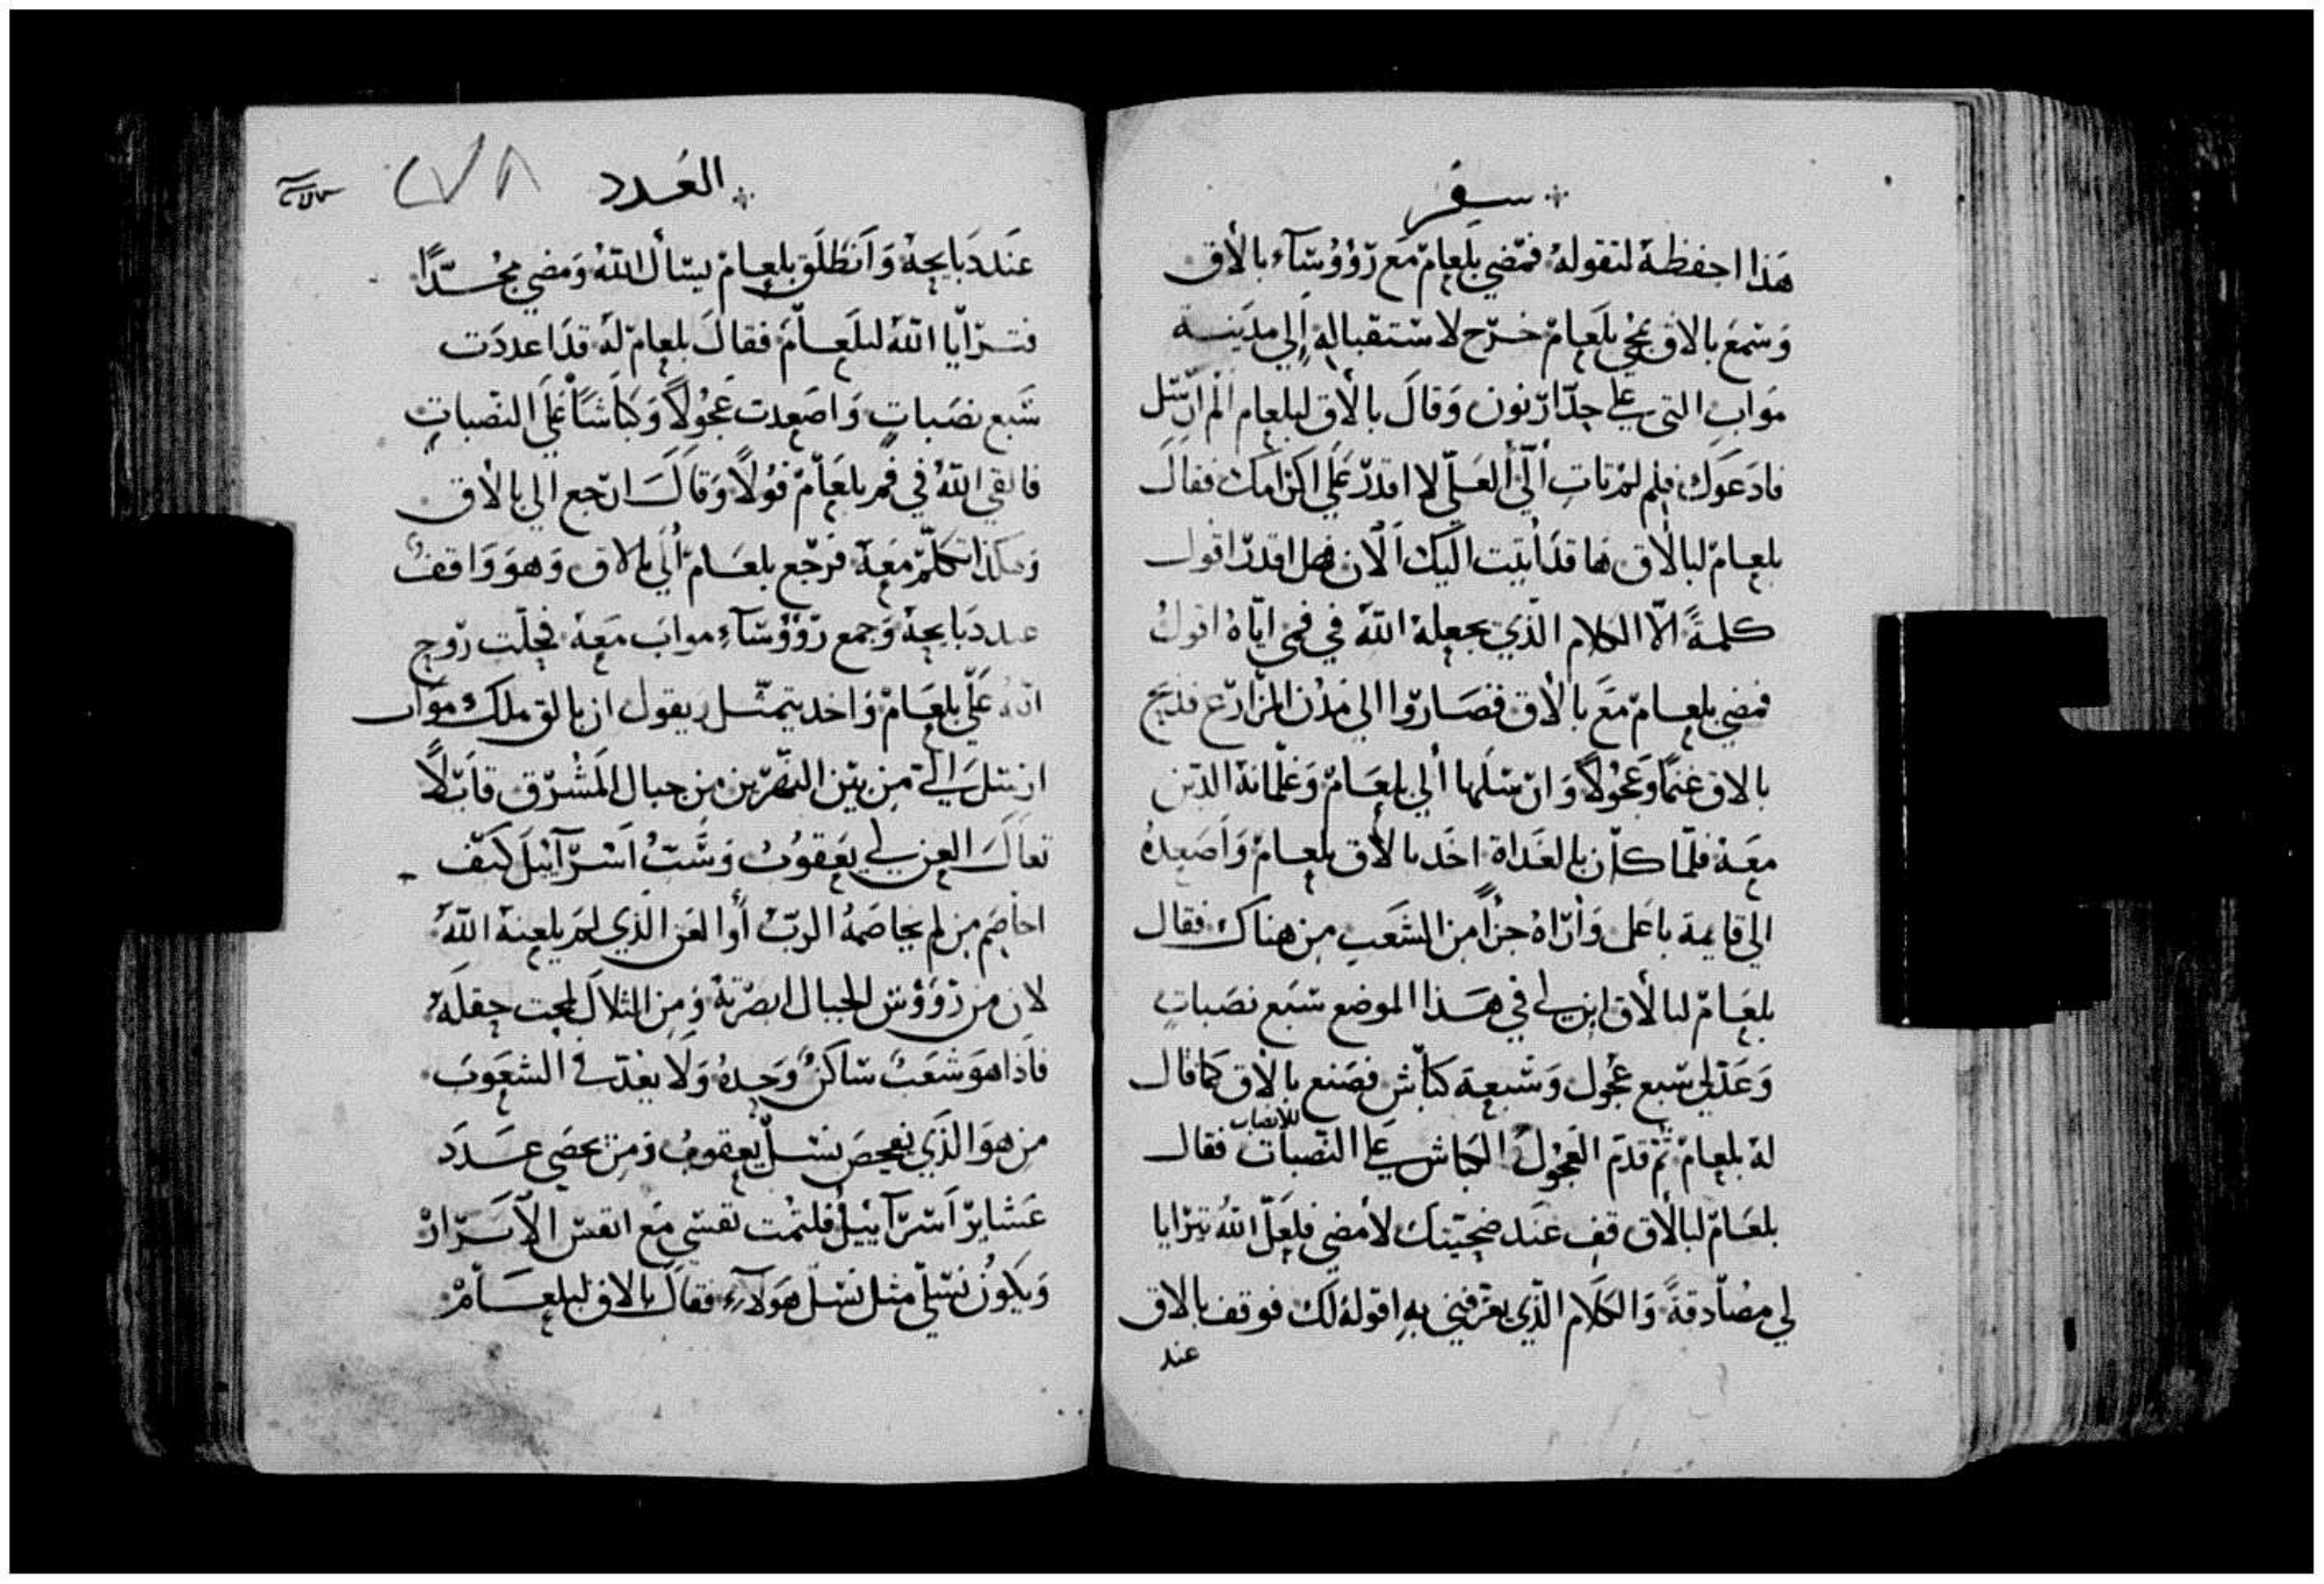 سفر
هذا احفظه لتقوله فمضي بلعام مع رؤوسآء بالاق
وسمع بالاق بمجي بلعام خرج لاستقباله إلي مدينة
مواب التي علي حد ارنون وقال بالاق لبلعام الم ارسل
فادعوك فلم لم تات الي العلي لا اقدر علي اكرامك فقال
بلعام لبالاق ها قد أتيت اليك الان فهل اقدر اقول
كلمةً الّا الكلام الذي يجعله الله في فمي اياه اقول
فمضي بلعام مع بالاق فصاروا الي مدن المزارع فذبح
بالاق غنمًا وعجولاً وارسلها ألي بلعام وغلمانه الذين
معه فلمّا كان بالغداة اخد بالاق بلعام وأصعده
الي قايمة باعل وأراه جزأً من الشعب من هناك فقال
بلعام لبالاق ابن لي في هذا الموضع سبع نصبات
وعد لي سبع عجول وسبعة كباش فصنع بالاق كما قال
له بلعام ثم قدم العجول الكباش علي النصبات فقال
للانصاب
بلعام لبالاق قف عند ضحيتك لأمضي فلعلّ الله يترايا
لي مصادقةً والكلام الذي يعرفني به اقوله لك فوقف بالاق
عند
العدد
٢٧٨
عند دبايحه وانطلق بلعام ليسأل الله ومضي مجدًا
فترايا الله لبلعام فقال بلعام له قد اعددت
سبع نصبات واصعدت عجولاً وكباشاً علي النصبات
فالقي الله في فم بلعام قولاً وقال ارجع الي بالاق
وهكذا تكلم معه فرجع بلعام ألي بالاق وهو واقف
عند دبايحه وجمع رؤوسآء مواب معه فحلت روح
الله علي بلعام واخد يتمثل ويقول ان بالق ملك مواب
ارسل الي من بين النهرين من جبال المشرق قايلاً
تعال العن لي يعقوب وسب اسرآييل كيف
اخاصم من لم يخاصمه الرب أوالعن الذي لم يلعنه الله
لان من رؤوس الجبال ابصرته ومن التلال لمحت حقله
فاذا هو شعب ساكن وحده ولا يعد في الشعوب
من هو الذي يفحص نسل يعقوب ومن يحصي عدد
عشاير اسرآييل فلتمت نفسي مع انفس الآبرار
ويكون نسلي مثل نسل هولآء فقال بالاق لبلعام